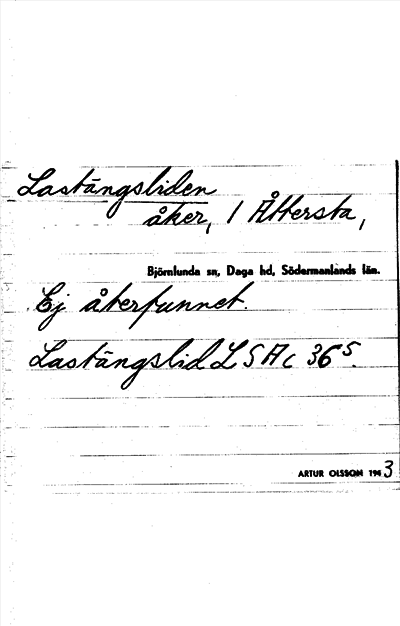 Lastängsliden
åker, / Åttersta,
Björnlunda sn, Daga hd, Södermanlands län.
Ej återfunnet.
Lastängslid LSA c 36 S.
ARTUR OLSSON 1963